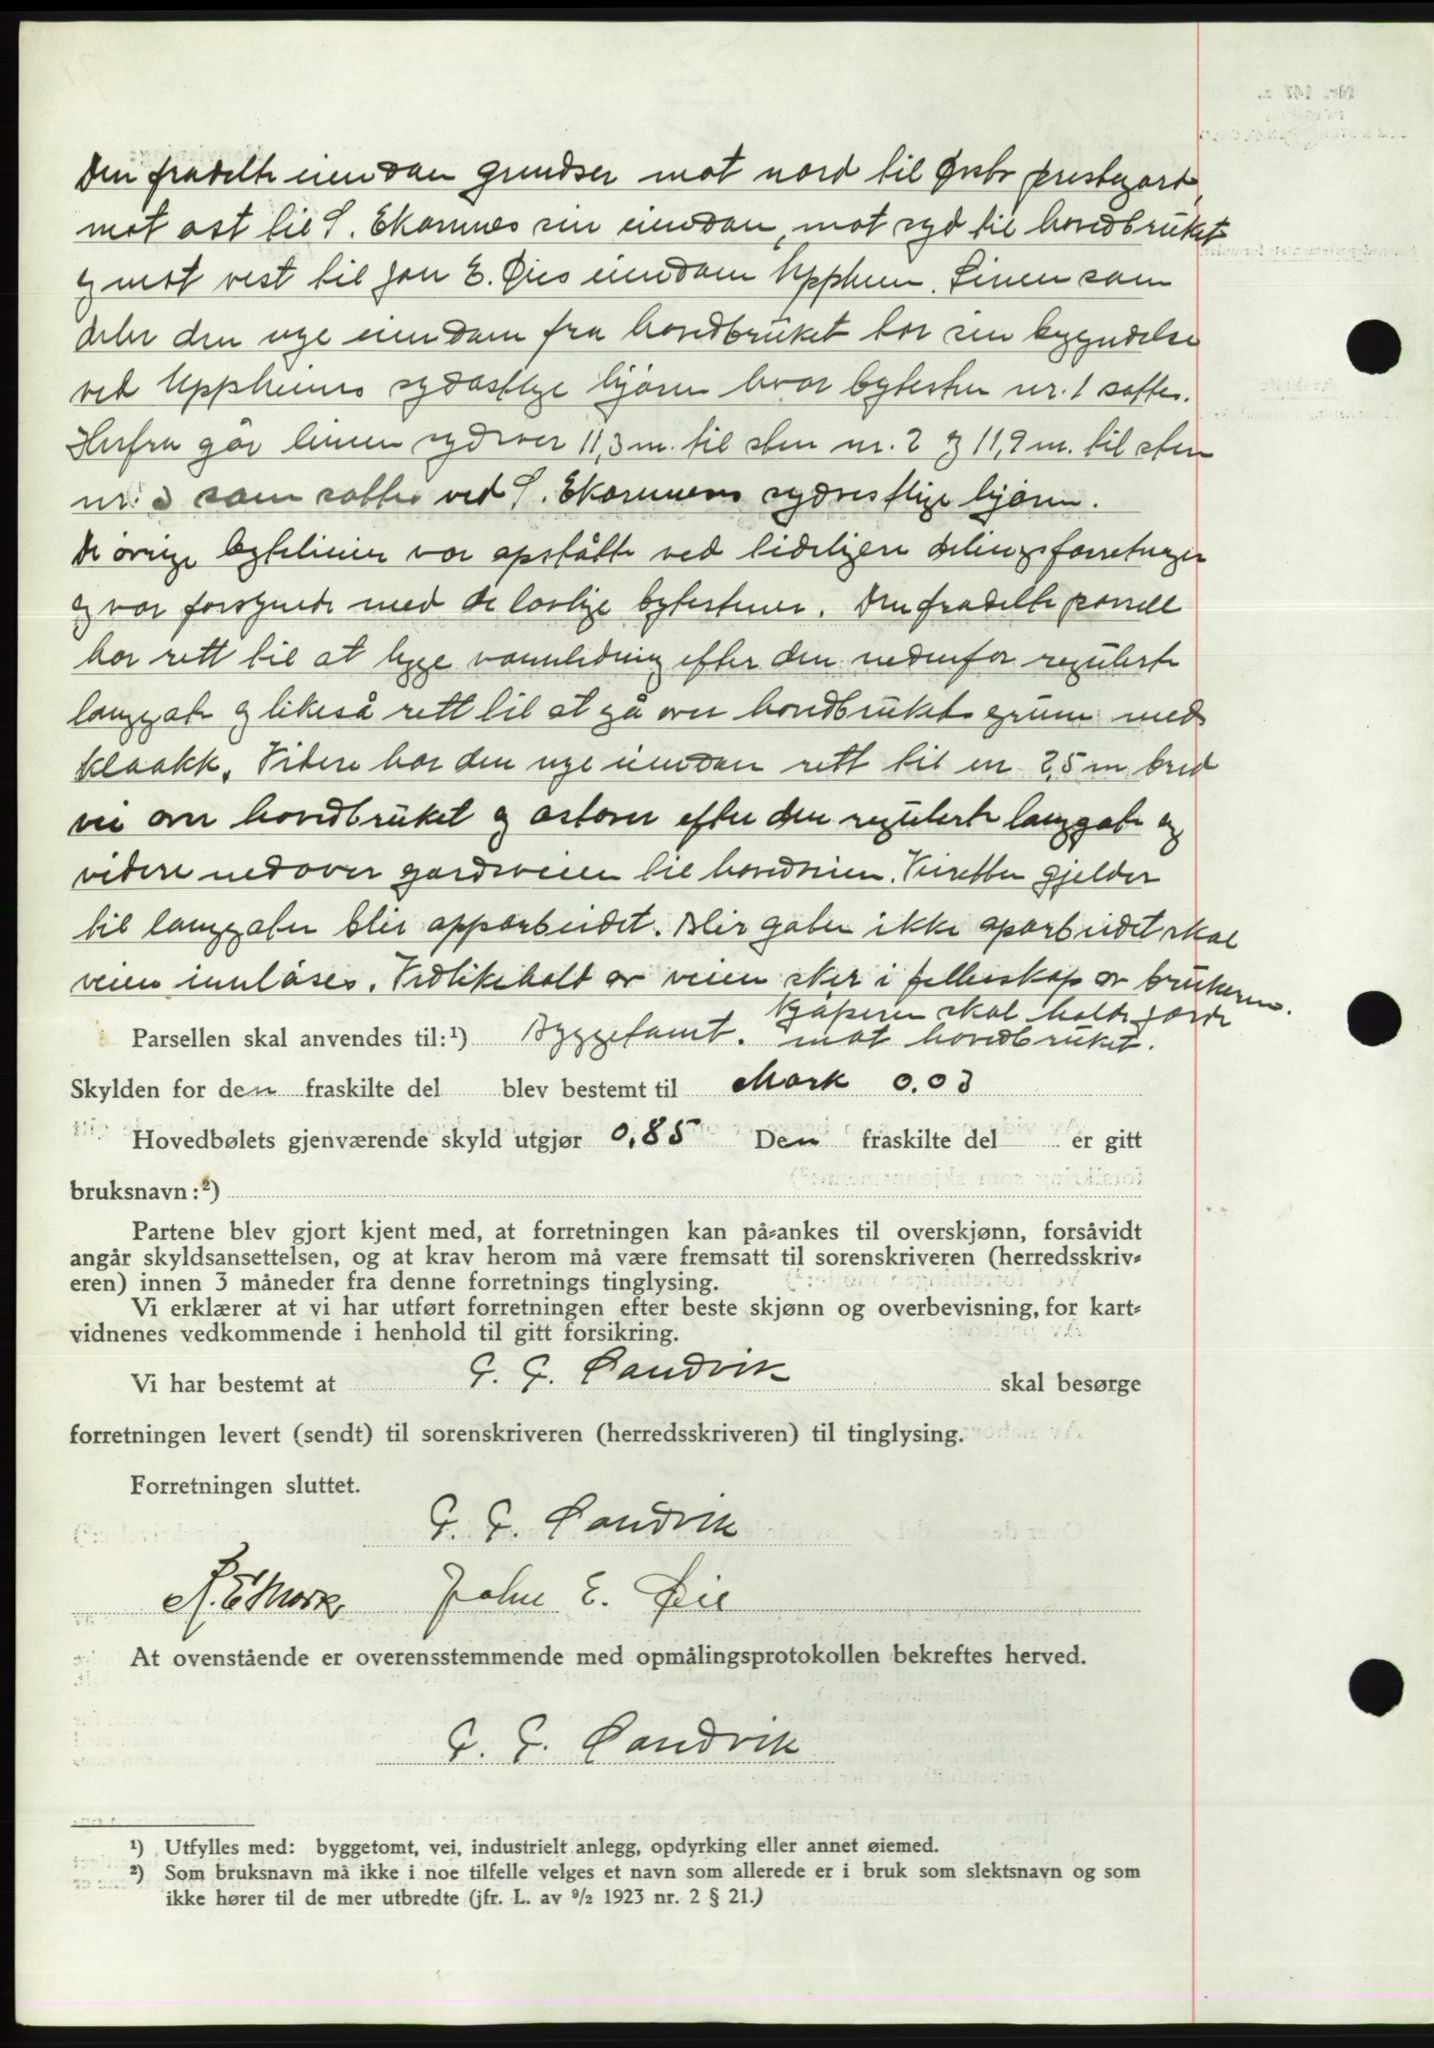 Den fradelte eiendom grendser mot nord til Ørsta prestegard,
mot øst til S. Ekornes sin eiendom, mot syd til hovedbruket
og mot vest til Jon E. Øies eiendom Uppheim. Linen som
deler den nye eiendom fra hovedbruket har sin begyndelse
ved Uppheims sydøstlige hjørne hvor bytesten nr. 1 sattes.
Herfra går linien sydover 11,3 m. til sten nr. 2 og 11,9 m. til sten
nr. 3 som sattes ved S. Ekornes sydvestlige hjørne.
De øvrige bytelinier var opståtte ved tidligere delingsforretninger
og var forsynede med de lovlige bytestener. Den fradelte parsell
har rett til at legge vannledning efter den nedenfor regulerte
langgate og likeså rett til at gå over hovedbrukets grunn med
kloakk. Videre har den nye eiendom rett til en 2,5 m bred
vei over hovedbruket og østover efter den regulerte langgate og
videre nedover gardsveien til hovedveien. Veiretten gjelder
til langgaten blir opparbeidet. Blir gaten ikke oparbeidet skal
veien innløses. Vedlikehold av veien skjer i fellesskap av brukerne.
Kjøperen skal holde gjerde
Parsellen skal anvendes til:¹) Byggetomt. mot hovedbruket.
Skylden for den fraskilte del blev bestemt til Mark 0.03
Hovedbølets gjenværende skyld utgjør 0,85 Den fraskilte del er gitt
bruksnavn:²)
Partene blev gjort kjent med, at forretningen kan på-ankes til overskjønn, forsåvidt
angår skyldsansettelsen, og at krav herom må være fremsatt til sorenskriveren (herredsskriv-
eren) innen 3 måneder fra denne forretnings tinglysing.
Vi erklærer at vi har utført forretningen efter beste skjønn og overbevisning, for kart-
vidnenes vedkommende i henhold til gitt forsikring.
Vi har bestemt at G. G. Sandvik skal besørge
forretningen levert (sendt) til sorenskriveren (herredsskriveren) til tinglysing.
Forretningen sluttet.
G. G. Sandvik
R. E Mork John E. Øie
At ovenstående er overensstemmende med opmålingsprotokollen bekreftes herved.
G. G. Sandvik
¹) Utfylles med: byggetomt, vei, industrielt anlegg, opdyrking eller annet øiemed.
²) Som bruksnavn må ikke i noe tilfelle velges et navn som allerede er i bruk som slektsnavn og som
ikke hører til de mer utbredte (jfr. L. av ⁹/₂ 1923 nr. 2 § 21.)